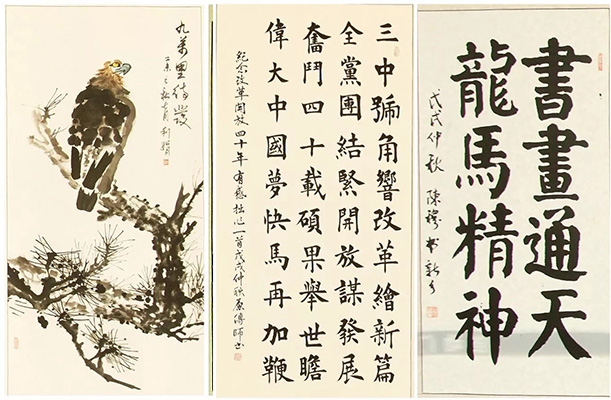 九萬里待發
三中號角響改革繪新篇
全黨團結緊開放謀發展
奮鬥四十載碩果舉世瞻
偉大中國夢快馬再加鞭
紀念改革開放四十年有感拙作一首戊戌仲秋
書畫通天
龍馬精神
戊戌仲秋 陳